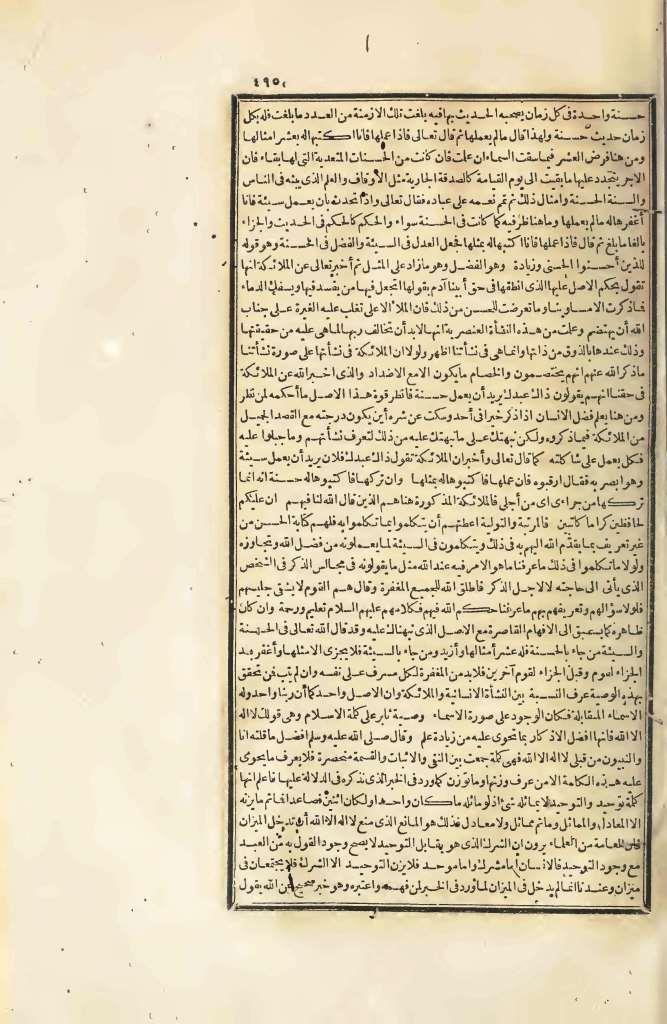 ٤٩٠
حسنة واحدة فى كل زمان يصحبه الحديث بها فيه بلغت تلك الازمنة من العدد ما بلغت فله بكل
زمان حديث حسنة ولهذا قال مالم يعملها ثم قال تعالى فاذا عملها فانا اكتبها له بعشر امثالها
ومن هنا فرض العشر فيما سقت السماء ان علمت فان كانت من الحسنات المتعدية التى لها بقاء فان
الاجر يتجدد عليها ما بقيت الى يوم القيامة كالصدقة الجارية مثل الأوقاف والعلم الذى يبثه فى الناس
والسنة الحسنة وامثال ذلك ثم تمم نعمه على عباده فقال تعالى واذا تحدث بأن يعمل سيئة فانا
أغفرها له مالم يعملها وما هنا ظرفيه كما كانت فى الحسنة سواء والحكم كالحكم فى الحديث والجزاء
بالغا ما بلغ ثم قال فاذا عملها فانا اكتبها له بمثلها فجعل العدل فى السيئة والفضل فى الحسنة وهو قوله
للذين أحسنوا الحسنى وزيادة وهو الفضل وهو مازاد على المثل ثم أخبر تعالى عن الملائكة انها
تقول بحكم الاصل عليها الذى انطقها فى حق أبينا آدم بقولها اتجعل فيها من يفسد فيها ويسفك الدماء
فما ذكرت الا مساوينا وما تعرضت للحسن من ذلك فان الملأ الاعلى تغلب عليه الغيرة على جناب
الله أن يهتضم وعلمت من هذه النشأة العنصريه انها لابد أن تخالف ربها لما هى عليه من حقيقتها
وذلك عندها بالذوق من ذاتها وانما هى فى نشأتنا اظهر ولولا ان الملائكة فى نشأتها على صورة نشأتنا
ما ذكر الله عنهم انهم يختصمون والخصام ما يكون الامع الاضداد والذى اخبر الله عن الملائكة
فى حقنا انهم يقولون ذاك عبدك يريد أن يعمل حسنة فانظر قوة هذا الاصل ما أحكمه لمن نظر
ومن هنا يعلم فضل الانسان اذا ذكر خيرا فى أحد وسكت عن شره أين يكون درجته مع القصد الجميل
من الملائكة فيما ذكروه ولكن نبهتك على ما نبهتك عليه من ذلك لتعرف نشأتهم وما جبلوا عليه
فكل يعمل على شاكلته كما قال تعالى وأخبر ان الملائكة تقول ذاك عبدك فلان يريد أن يعمل سيئة
وهو ابصر به فقال ارقبوه فان عملها فاكتبوها له بمثلها وان تركها فاكتبوها له حسنة انه انما
تركها من جراءى اى من أجلى فالملائكة المذكورة هنا هم الذين قال الله لنا فيهم ان عليكم
لحافظين كراما كاتبين فالمرتبة والتولية اعطتهم أن يتكلموا بما تكلموا به فلهم كتابة الحسن من
غير تعريف بما يتقدم الله اليهم به فى ذلك ويتكلمون فى السيئة لما يعملونه من فضل الله وتجاوزه
ولولا ما تكلموا فى ذلك ما عرفنا ما هو الامر فيه عند الله مثل ما يقولونه فى مجالس الذكر فى الشخص
الذى يأتى الى حاجته لا لاجل الذكر فاطلق الله للجميع المغفرة وقال هم القوم لا يشقى جليسهم
فلولا سؤالهم وتعريفهم بهم ما عرفنا حكم الله فيهم فكلامهم عليهم السلام تعليم ورحمة وان كان
ظاهره كما يسبق الى الافهام القاصرة مع الاصل الذى نبهناك عليه وقد قال الله تعالى فى الحسنة
والسيئة من جاء بالحسنة فله عشر أمثالها وأزيد ومن جاء بالسيئة فلا يجزى الامثلها وأغفر بعد
الجزاء لقوم وقبل الجزاء لقوم آخرين فلابد من المغفرة لكل مسرف على نفسه وان لم يتب فمن تحقق
بهذه الوصية عرف النسبة بين النشأة الانسانية والملائكة وان الاصل واحد كما أن ربنا واحد وله
الاسماء المتقابلة فكان الوجود على صورة الاسماء وصية ثابر على كلمة الاسلام وهى قولك لا اله
الا الله فانها افضل الاذكار بما تحوى عليه من زيادة علم وقال صلى الله عليه وسلم افضل ما قلته انا
والنبيون من قبلى لا اله الا الله فهى كلمة جمعت بين النفى والاثبات والقسمة منحصرة فلا يعرف ما يحوى
عليه هذه الكلمة الا من عرف وزنها وما توزن كما ورد فى الخبر الذى نذكره فى الدلالة عليها فاعلم انها
كلمة توحيد والتوحيد لا يماثله شئ اذ لو ماثله ما كان واحدا ولكان اثنين فصاعدا فما ثم ما يزنه
الا المعادل والمماثل وما ثم مماثل ولا معادل فذلك هو المانع الذى منع لا اله الا الله أن تدخل الميزان
فان العامة من العلماء يرون ان الشرك الذى هو يقابل التوحيد لا يصح وجود القول به من العبد
مع وجود التوحيد فالانسان اما مشرك واما موحد فلا يزن التوحيد الا الشرك فلا يجتمعان فى
ميزان وعندنا انما لم يدخل فى الميزان لما ورد فى الخبر لمن فهمه واعتبره وهو خبر صحيح عن الله يقول